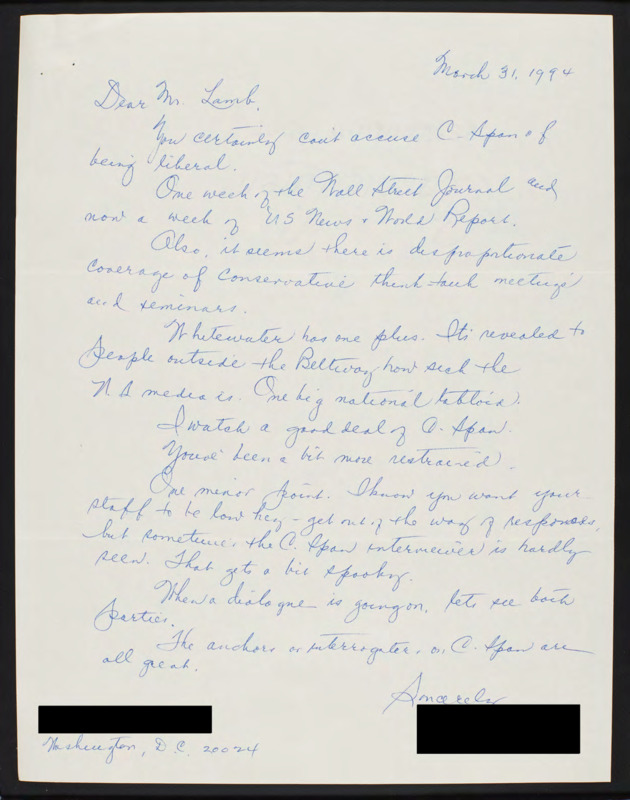 March 31, 1994
Dear Mr. Lamb,
You certainly can't accuse C-Span of
being liberal.
One week of the Wall Street Journal and
now a week of US News & World Report.
Also, it seems there is disproportionate
coverage of conservative think tank meetings
and seminars.
Whitewater has one plus. It's revealed to
people outside the Beltway how sick the
media is. One big national tabloid.
I watch a good deal of C-Span.
You've been a bit more restrained.
One minor point. I know you want your
staff to be low key - get out of the way of responses,
but sometimes the C. Span interviewer is hardly
seen. That gets a bit spooky.
When a dialogue is going on, lets see both
parties.
The anchors or interrogators on C. Span are
all great.
Sincerely
Washington, D.C. 20024